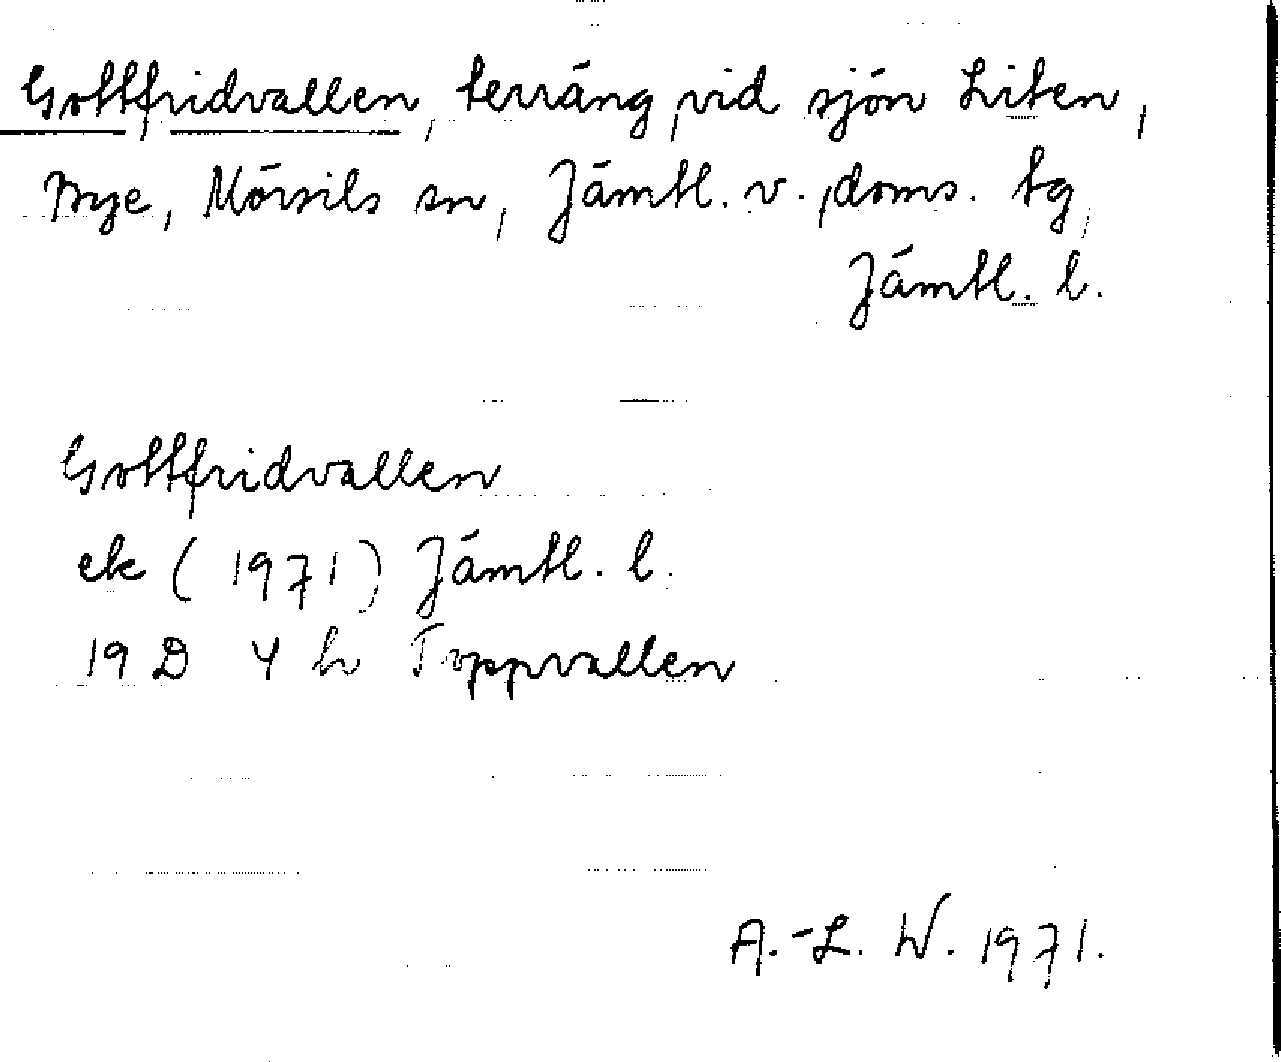 Gottfridvallen, terräng vid sjön Liten,
Bye, Mörsils sn, Jämtl. v. doms. tg,
Jämtl. l.
Gottfridvallen
ek (1971) Jämtl. l.
19 D 4 h Toppvallen
A.-L. W. 1971.